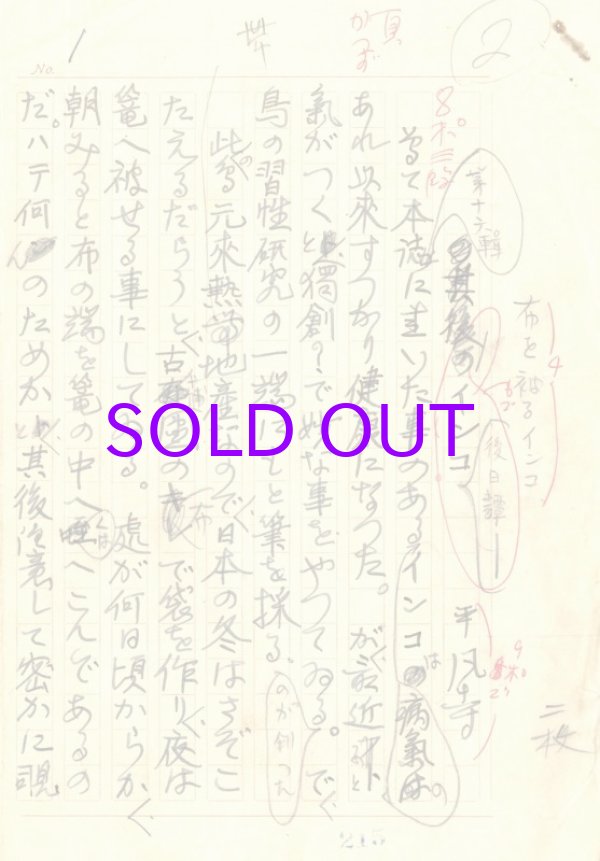 2
頁
かつず
No. 1
布を被るインコ
4
第十六輯
其後のインコ
後日譚
平凡寺
二枚
8ポ三段
曽て本誌に書いた事のあるインコは病氣の
あれ以來すつかり健康になつた。が最近
氣がつくと獨創?で妙な事をやつてゐる。で
鳥の習性研究の一端にもと筆を採る。
のが創つた
此の鳥元來熱帶地産なので日本の冬はさぞこ
たえるだらうと古 の布で袋を作り夜は
篭へ被せる事にしてゐる。處が何日頃からか
朝みると布の端を篭の中へくはへこんであるの
だ。ハテ何んのためかと其後注意して密かに覗
215
SOLD OUT